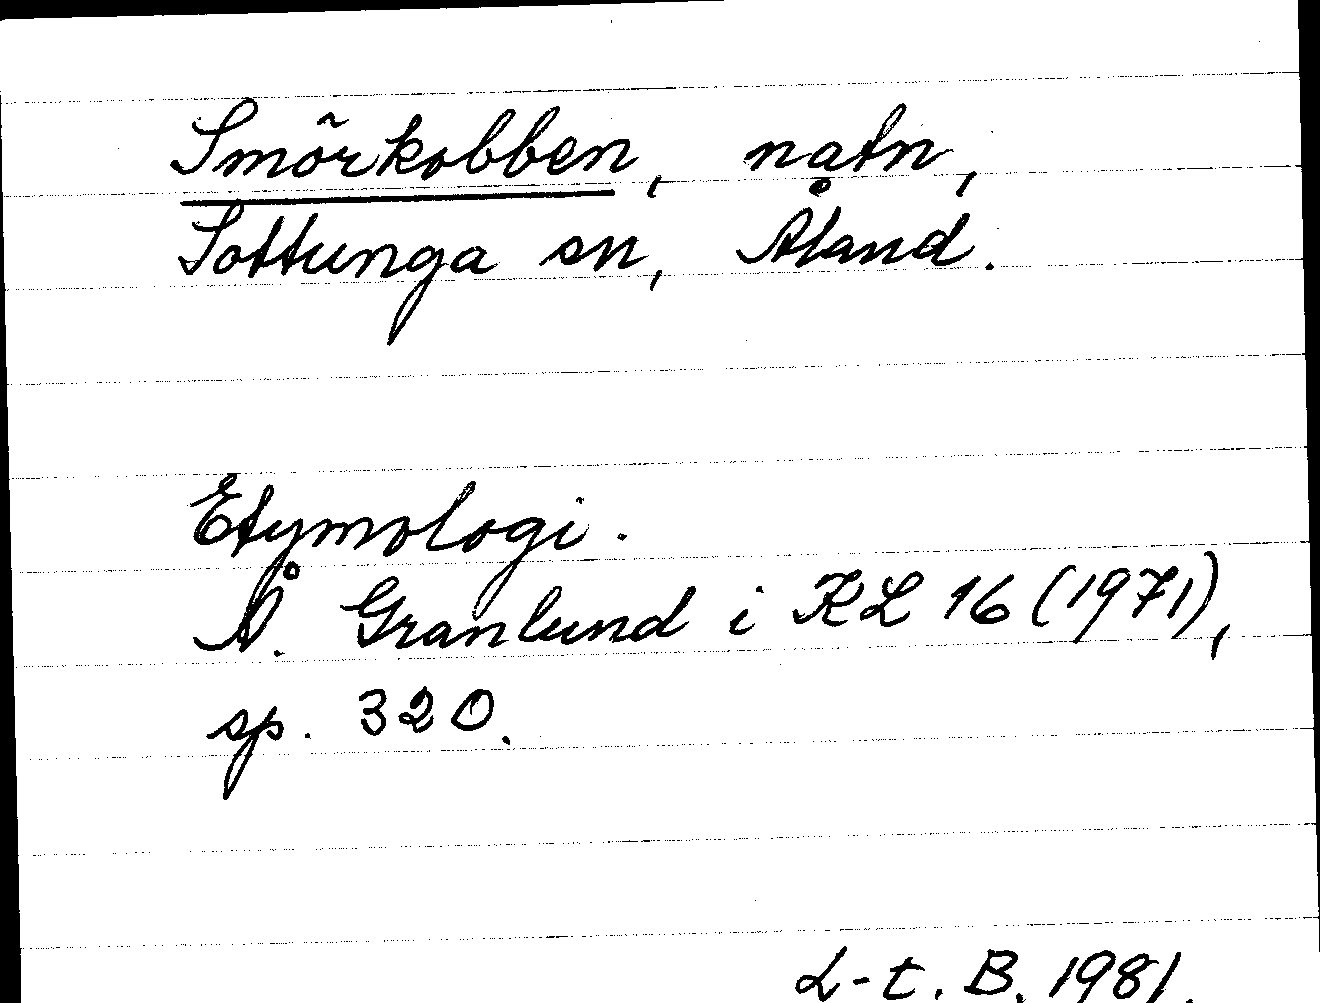 Smörkobben, natn,
Sottunga sn, Åland.
Etymologi.
Å. Granlund i KL 16 (1971),
sp. 320.
L-t. B. 1981.